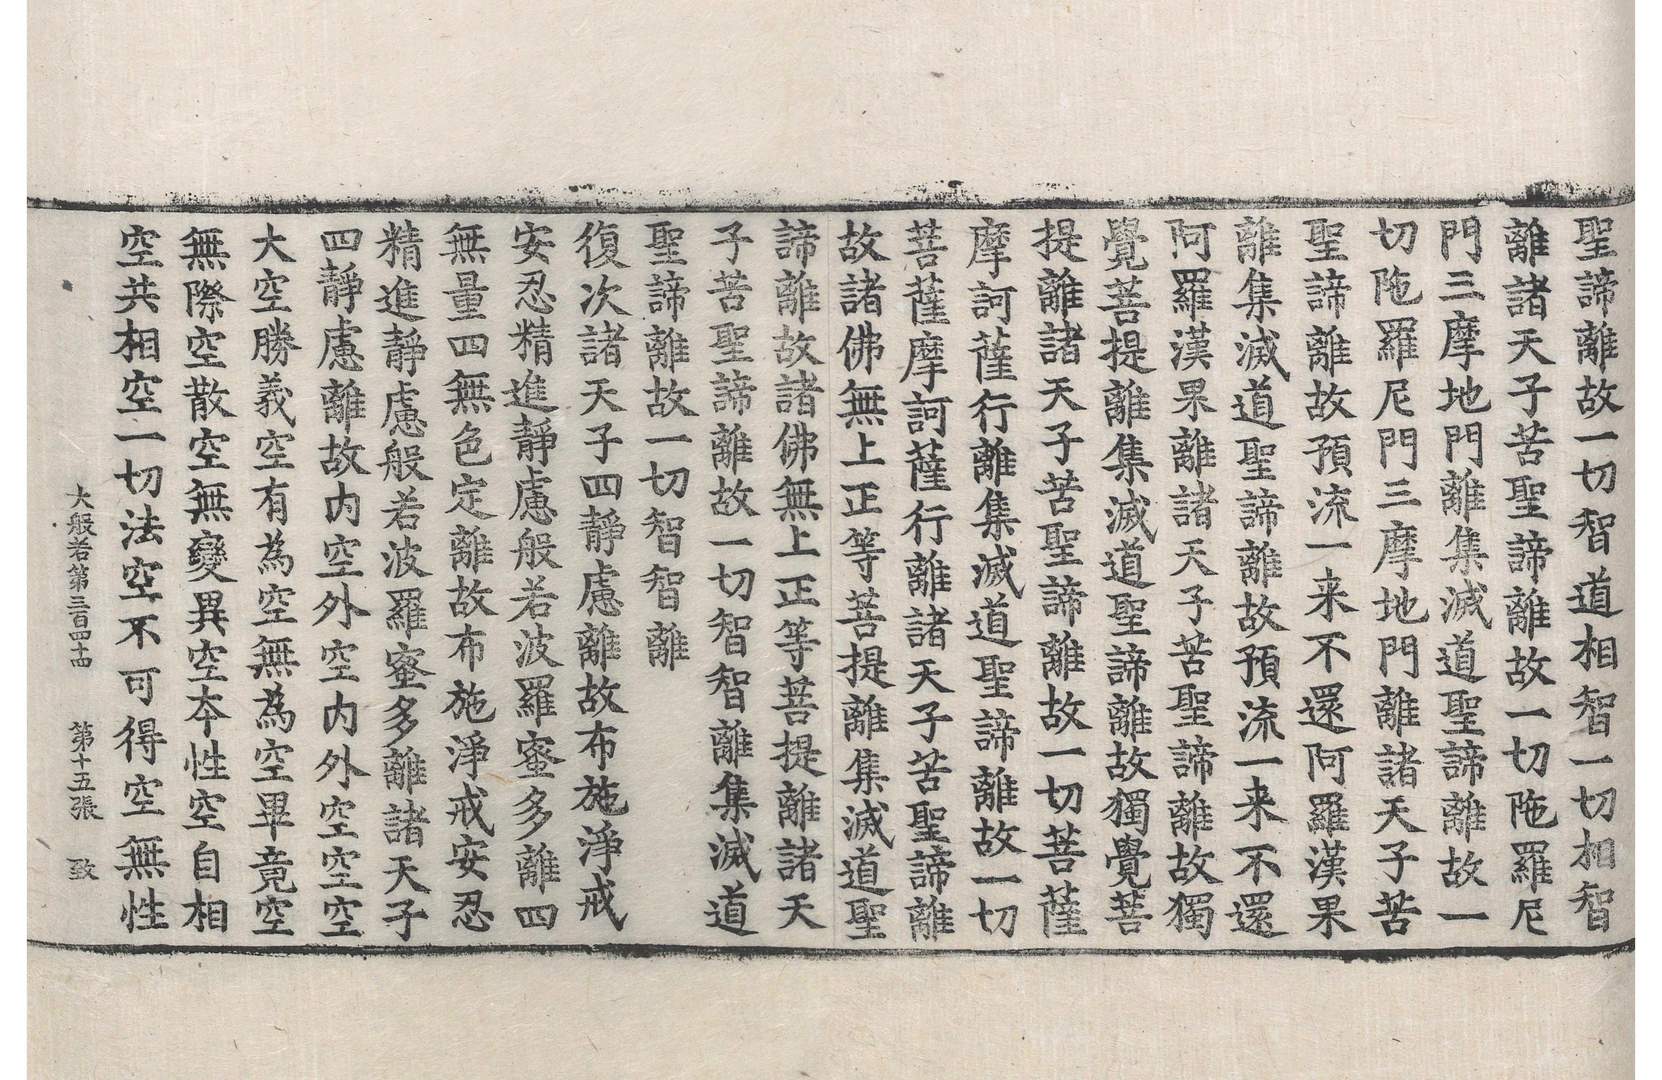 聖諦離故一切智智道相智一切相智
離諸天子苦聖諦離故一切陁羅尼
門三摩地門離集滅道聖諦離故一
切陁羅尼門三摩地門離諸天子苦
聖諦離故預流一来不還阿羅漢果
離集滅道聖諦離故預流一来不還
阿羅漢果離諸天子苦聖諦離故獨
覺菩提離集滅道聖諦離故獨覺菩
提離諸天子苦聖諦離故一切菩薩
摩訶薩行離集滅道聖諦離故一切
菩薩摩訶薩行離諸天子苦聖諦離
故諸佛無上正等菩提離集滅道聖
諦離故諸佛無上正等菩提離諸天
子苦聖諦離故一切智智離集滅道
聖諦離故一切智智離
復次諸天子四靜慮離故布施淨戒
安忍精進靜慮般若波羅蜜多離四
無量四無色定離故布施淨戒安忍
精進靜慮般若波羅蜜多離諸天子
四靜慮離故内空外空内外空空空
大空勝義空有為空無為空畢竟空
無際空散空無變異空本性空自相
空共相空一切法空不可得空無性
大般若第三百四十四 第十五張 致